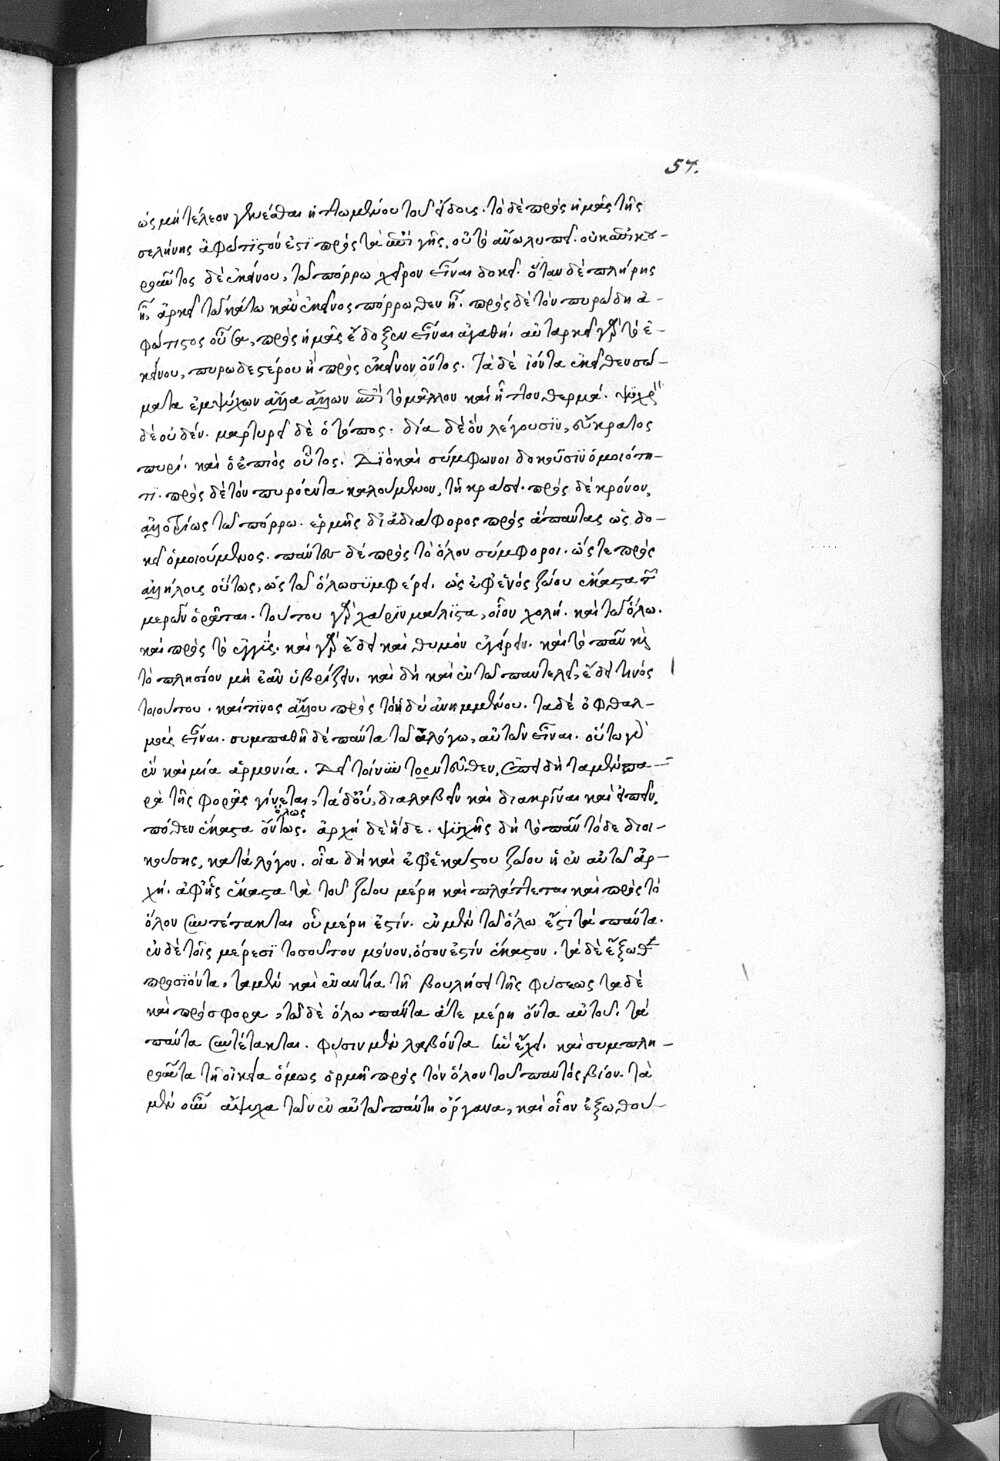 57.
ὡς μὴ τέλεον γενέσθαι ἡττωμένου τοῦ εἴδους. τὸ δὲ πρὸς ἡμᾶς τῆς
σελήνης ἀφώτιστόν ἐστι πρὸς τὰ ἐπὶ γῆς, οὐ τὸ ἄνω λυπεῖ. οὐκ ἐπικου-
ροῦντος δὲ ἐκείνου, τῷ πόρρω χεῖρον εἶναι δοκεῖ. ὅταν δὲ πλήρης
ᾖ, ἀρκεῖ τῷ κάτω κἂν ἐκεῖνος πόρρωθεν ᾖ. πρὸς δὲ τὸν πυρώδη ἀ-
φώτιστος οὖσα, πρὸς ἡμᾶς ἔδοξεν εἶναι ἀγαθή. αὐταρκεῖ γὰρ τὸ ἐ-
κείνου, πυρωδεστέρου ἢ πρὸς ἐκεῖνον ὄντος. τὰ δὲ ἰόντα ἐκεῖθεν σώ-
ματα ἐμψύχων ἄλλα ἄλλων ἐπὶ τὸ μᾶλλον καὶ ἧττον θερμά. ψυχρὸν
δὲ οὐδέν. μαρτυρεῖ δὲ ὁ τόπος. δία δὲ ὃν λέγουσιν, εὔκρατος
πυρί. καὶ ὁ ἑῷος οὗτος. Διὸ καὶ σύμφωνοι δοκοῦσιν ὁμοιότη-
τι. πρὸς δὲ τὸν πυρόεντα καλούμενον, τῇ κράσει. πρὸς δὲ κρόνον,
ἀλλοτρίως τῷ πόρρω. ἑρμῆς δ' ἀδιάφορος πρὸς ἅπαντας ὡς δο-
κεῖ ὁμοιούμενος. πάντες δὲ πρὸς τὸ ὅλον σύμφοροι. ὥστε πρὸς
ἀλλήλους οὕτως, ὡς τῷ ὅλῳ συμφέρει. ὡς ἐφ' ἑνὸς ζώου ἕκαστα τῶν
μερῶν ὁρᾶται. τούτου γὰρ χάριν μάλιστα, οἷον χολή. καὶ τῷ ὅλῳ.
καὶ πρὸς τὸ ἐγγύς. καὶ γὰρ ἔδει καὶ θυμὸν ἐγείρειν. καὶ τὸ πᾶν καὶ
τὸ πλησίον μὴ ἐᾶν ὑβρίζειν. καὶ δὴ καὶ ἐν τῷ παντελεῖ, ἔδει τινὸς
τοιούτου. καί τινος ἄλλου πρὸς τὸ ἡδὺ ἀνημμένου. τὰ δὲ ὀφθαλ-
μοὺς εἶναι. συμπαθῆ δὲ πάντα τῷ ἀλόγῳ, αὐτῶν εἶναι. οὕτω γὰρ
ἓν καὶ μία ἁρμονία. Δεῖ τοίνυν τὸ ἐντεῦθεν, ἐπειδὴ τὰ μὲν πα-
ρὰ τῆς φορᾶς γίνεται, τὰ δ' οὔ, διαλαβεῖν καὶ διακρῖναι καὶ εἰπεῖν,
πόθεν ἕκαστα ὅλως. ἀρχὴ δὲ ἥδε. ψυχῆς δὴ τὸ πᾶν τόδε διοι-
κούσης, κατὰ λόγον. οἵα δὴ καὶ ἐφ' ἑκάστου ζώου ἡ ἐν αὐτῷ ἀρ-
χή. ἀφ' ἧς ἕκαστα τὰ τοῦ ζώου μέρη καὶ πλάττεται καὶ πρὸς τὸ
ὅλον συντέτακται οὗ μέρη ἐστίν. ἐν μὲν τῷ ὅλῳ ἔστι τὰ πάντα.
ἐν δὲ τοῖς μέρεσι τοσοῦτον μόνον, ὅσον ἐστὶν ἕκαστον. τὰ δὲ ἔξωθεν
προσιόντα, τὰ μὲν καὶ ἐναντία τῇ βουλήσει τῆς φύσεως τὰ δὲ
καὶ πρόσφορα, τῷ δὲ ὅλῳ πάντα ἅτε μέρη ὄντα αὐτοῦ. τὰ
πάντα συντέτακται. φύσιν μὲν λαβόντα ἣν ἔχει. καὶ συμπλη-
ροῦντα τῇ οἰκείᾳ ὅμως ὁρμῇ πρὸς τὸν ὅλον τοῦ παντὸς βίον. τὰ
μὲν οὖν ἄψυχα τῶν ἐν αὐτῷ πάντη ὄργανα, καὶ οἷον ἐξωθού-